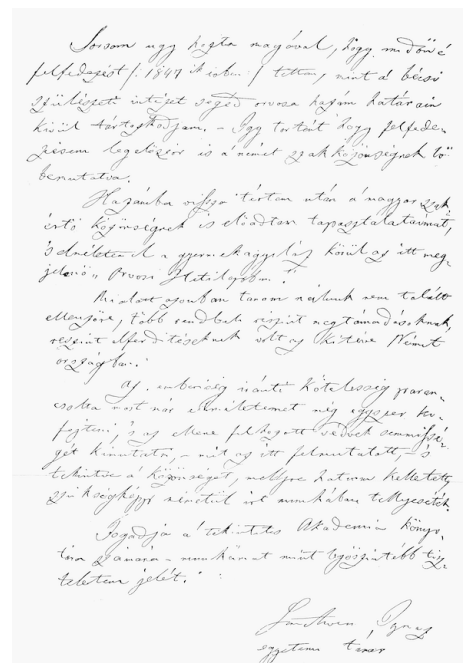 Sorsom ugy hozta magával, hogy midőn é
felfedezést /: 1847ik ioben :/ tettem, mint a bécsi
szülészeti intézet segéd orvosa hazám határain
kivül tartozkodjam. – Igy történt hogy felfede-
zésem legelöször is a német szakközönségnek lö
bemutatva.
Hazámba vissza térten után a magyar szak
értö közönségnek is elöadtam tapasztalataimat,
's elméletemet a gyermekágyi láz körül az itt meg-
jelenö „Orvosi Hetilapban."
Mialatt azonban tanom nálunk nem talált
ellenzöre, több rendbeli részint megtámadásoknak,
részint elferditéseknek volt az kitéve Német
országban.
Az emberiség iránti kötelesség paran-
csolta most már elméletemet még egyszer ki-
fejteni, 's az ellene felhozott vádok semmisé-
gét kimutatni, – mit az itt felmutatott, – 's
tekintve a közönséget, mellyre hatnom kelletett
szükségképp németül irt munkában teljesiték.
Fogadja a' tekintetes Akademia könyv-
tára számára – munkámat mint legöszintébb tisz-
teletem jelét.
Semmelweis Ignaz
egyetemi tanár